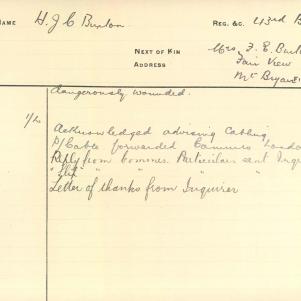 NAME H. J. C. Burton REG. &C. 43rd B
NEXT OF KIN Mrs F. E. Burt
ADDRESS Fair View
Mt Bryan E
dangerously wounded.
1/20 Acknowledged advising Cabling
P/Cable forwarded Commrs Londo
Reply from Commrs. Particulars sent Inqu
" " " " "
Letter of thanks from Inquirer